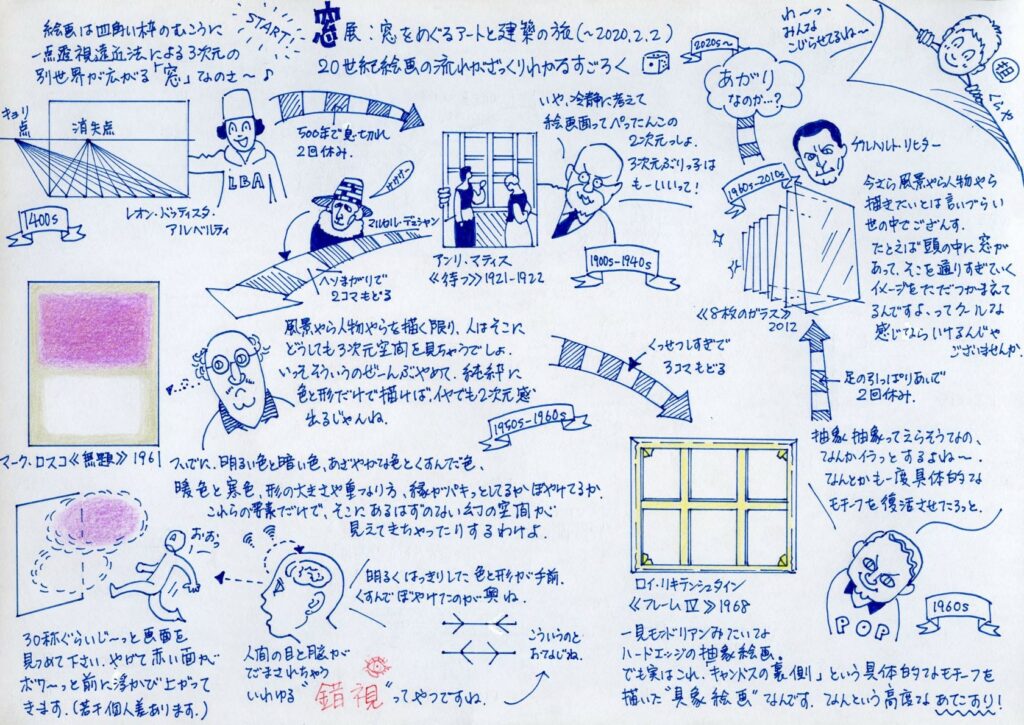 絵画は四角い枠のむこうに
一点透視遠近法による3次元の
別世界が広がる「窓」なのさ〜♪
START!
窓展:窓をめぐるアートと建築の旅(〜2020.2.2)
20世紀絵画の流れがざっくりわかるすごろく
わ〜っ、
みんな
こじらせてるね〜
2020s〜
あがり
なのか…?
キョリ
点
消失点
LBA
1400s
レオン・バッティスタ・
アルベルティ
500年で息切れ
2回休み.
マルセル・デュシャン
ヘソまがりで
2コマもどる
いや、冷静に考えて
絵画面ってぺったんこの
2次元っしょ.
3次元ぶりっ子は
もーいいって!
アンリ・マティス
《待つ》1921-1922
1900s-1940s
ゲルハルト・リヒター
1960s-2010s
《8枚のガラス》
2012
今さら風景やら人物やら
描きたいとは言いづらい
世の中でござんす.
たとえば頭の中に窓が
あって、そこを通りすぎていく
イメージをただつかまえて
るんですよ、ってクールな
感じならいけるんじゃ
ございませんか.
風景やら人物やらを描く限り、人はそこに
どうしても3次元空間を見ちゃうでしょ.
いっそそういうのぜーんぶやめて、純粋に
色と形だけで描けば、イヤでも2次元感
出るじゃんね.
1950s-1960s
くっせつしすぎで
3コマもどる
足の引っぱりあいで
2回休み.
マーク・ロスコ《無題》1961
ついでに、明るい色と暗い色、あざやかな色とくすんだ色、
暖色と寒色、形の大きさや重なり方、縁がパキッとしてるかぼやけてるか
これらの要素だけで、そこにあるはずのない幻の空間が
見えてきちゃったりするわけよ.
抽象抽象ってえらそうなの、
なんかイラッとするよね〜.
なんとかも一度具体的な
モチーフを復活させたろっと.
POP
1960s
おおっ
30秒ぐらいじ〜っと画面を
見つめて下さい.やがて赤い面が
ボワ〜っと前に浮かび上がって
きます.(若干個人差あります.)
人間の目と脳が
だまされちゃう
いわゆる“錯視”ってやつですね.
明るくはっきりした色と形が手前.
くすんでぼやけたのが奥ね.
こういうのと
おなじね.
ロイ・リキテンシュタイン
《フレームⅣ》1968
一見モンドリアンみたいな
ハードエッジの抽象絵画.
でも実はこれ、「キャンバスの裏側」という具体的なモチーフを
描いた“具象絵画”なんです.なんという高度なあてこすり!